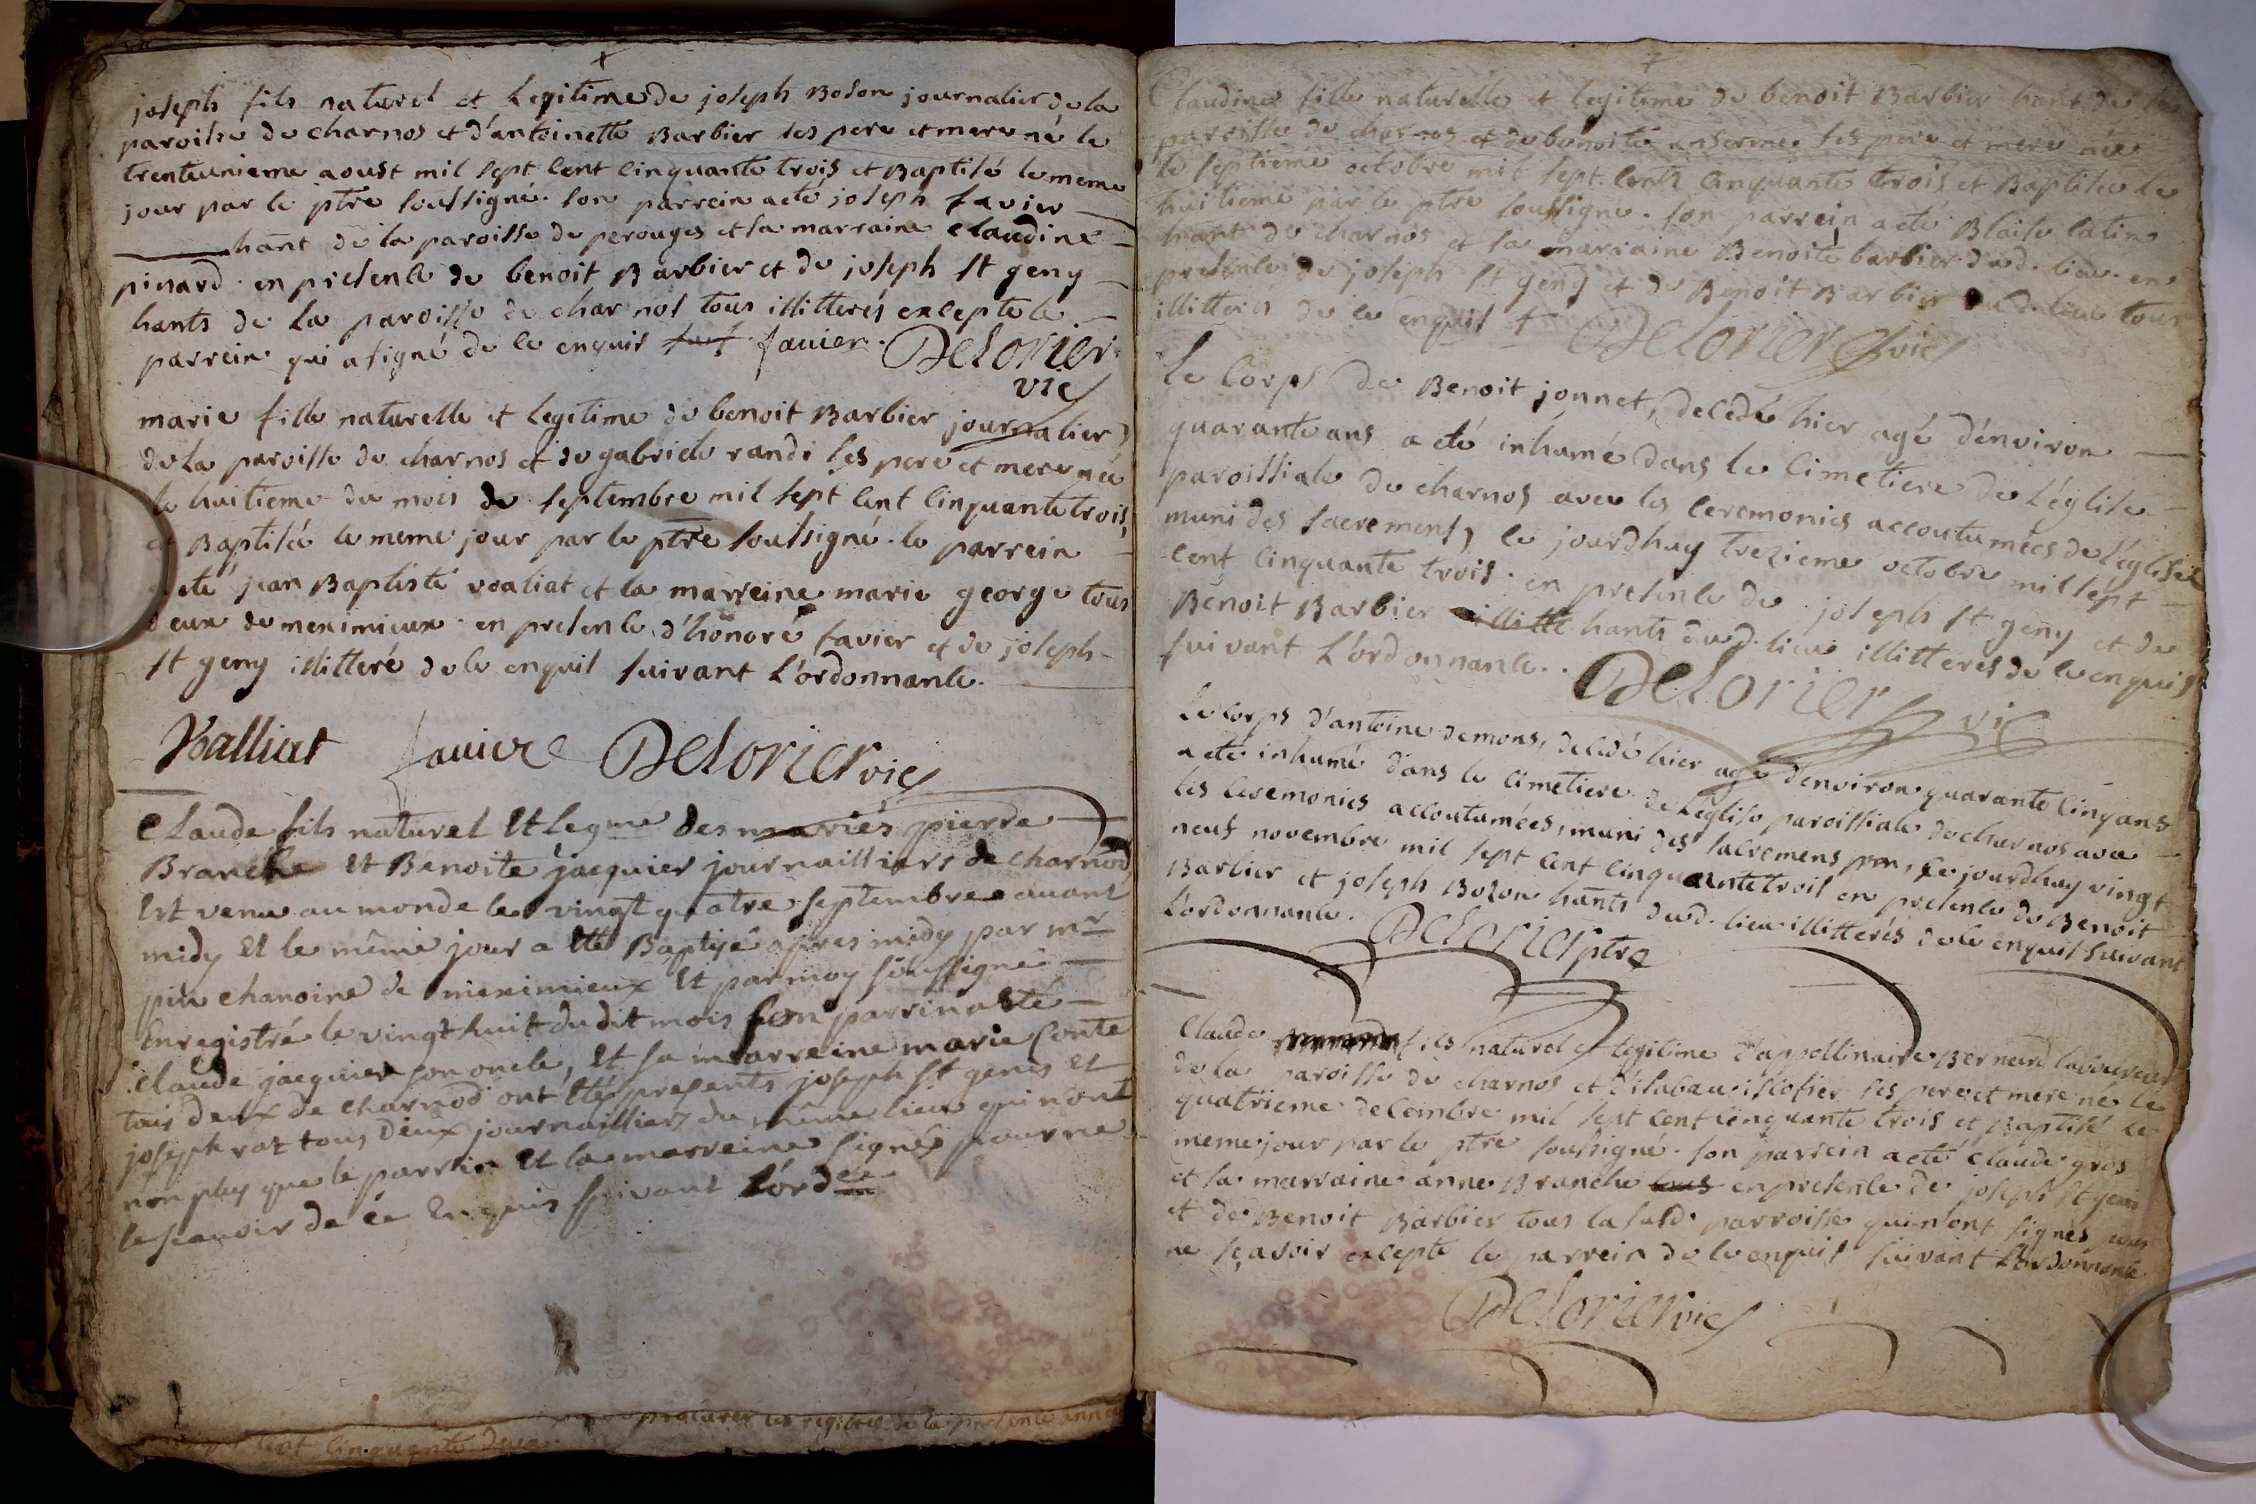 joseph fils naturel et Legitime de joseph Boson journalier de la
paroisse de charnos et d'antoinette Barbier ses pere et mere né le
trenteunieme aoust mil sept cent cinquante trois et Baptisé le meme
jour par le ptre soussigné. son parrein a eté joseph favier
hant de la paroisse de perouges et sa marraine Claudine
pinard. en presence de benoit Barbier et de joseph st geny
hants de la paroisse de charnos tous illitterés excepte le
parrein qui a signé de ce enquis favier. Delorier
vic
marie fille naturelle et Legitime de benoit Barbier journalier
de la paroisse de charnos et de gabriele randi ses pere et mere née
le huitieme du mois de septembre mil sept cent cinquante trois
et Baptisée le meme jour par le ptre soussigné. le parrein
a eté jean Baptiste voaliat et la marreine marie george tous
deux de meximieux. en presence d'honoré favier et de joseph
st geny illitteré de ce enquis suivant L'ordonnance.
Voalliat favier Delorier vic
Claude fils naturel Et legme des mariés pierre
Branche Et Benoite jacquier journailliers de charnod
Est venu au monde le vingt quatre septembre avant
midy Et le même jour a Eté Baptisé apres midy par mr
piu chanoine de meximieux Et par moy soussigné
Enregistré le vingt huit du dit mois son parrin a Eté
Claude jacquier son oncle, Et sa marreine marie Conte
tous deux de charnod ont Eté presents joseph st genis Et
joseph rat tous deux journailliers du même lieu qui n'ont
non plus que le parrin Et la marreine signé pour ne
le scavoir de ce Enquis suivant l'ordce
procurer les registres de la presente année
cent cinquante deux
Claudine fille naturelle et legitime de benoit Barbier hant de la
paroisse de charnos et de benoite anserme ses pere et mere née
le septieme octobre mil sept cent cinquante trois et Baptisée le
huitieme par le ptre soussigné. son parrein a eté Blaise latin
hant de charnos et la marraine Benoite barbier dud. lieu. en
presence de joseph st geny et de Benoit Barbier dud. lieu tous
illitterés de ce enquis Delorier vic
Le Corps de Benoit jonnet, decedé hier agé d'environ
quarante ans a eté inhumé dans le Cimetiere de L'église
paroissiale de charnos avec les ceremonies accoutumées de l'église
muni des sacrements, ce jourdhuy trezieme octobre mil sept
cent cinquante trois. en presence de joseph st geny et de
Benoit Barbier hants dud. lieu illitterés de ce enquis
suivant L'ordonnance. Delorier vic
Le Corps d'antoine demons, decedé hier agé denviron quarante cinq ans
a eté inhumé dans le Cimetiere de L'église paroissiale de charnos avec
les ceremonies accoutumées, muni des sacremens, ce jourdhuy vingt
neuf novembre mil sept cent cinquante trois en presence de Benoit
Barbier et joseph Boson hants dud. lieu illitterés de ce enquis suivant
L'ordonnance. Delorier ptre
Claude fils naturel et legitime d'appollinaire Bernard laboureur
de la paroisse de charnos et d'isabau ses pere et mere né le
quatrieme decembre mil sept cent cinquante trois et Baptisé le
meme jour par le ptre soussigné. son parrein a eté Claude gros
et sa marraine anne Branche en presence de joseph st genis
et de Benoit Barbier tous la susd. parroisse qui n'ont signés pour
ne sçavoir excepte le parrein de ce enquis suivant L'ordonnance
Delorier vic